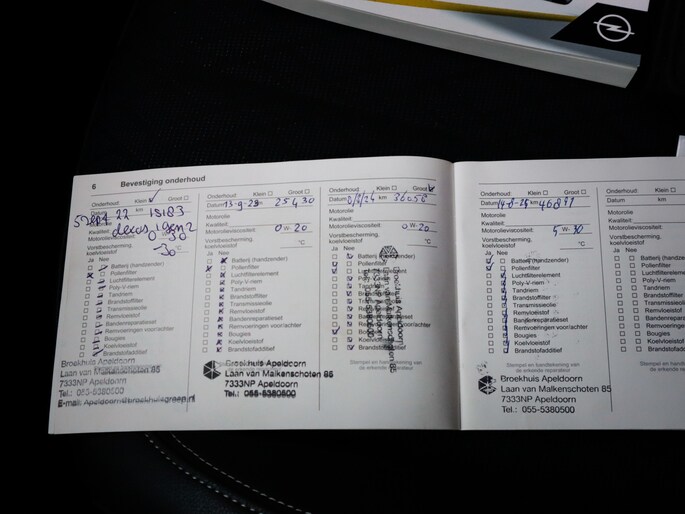 6 Bevestiging onderhoud
Onderhoud: Klein Groot
5 sept 22 km 15183
Kwaliteit: dexos 1 gen 2
Motorolieviscositeit: 0 W- 30
Vorstbescherming, koelvloeistof
-30
Ja Nee
Batterij (handzender)
Pollenfilter
Luchtfilterelement
Poly-V-riem
Tandriem
Brandstoffilter
Transmissieolie
Remvloeistof
Bandenreparatieset
Remvoeringen voor/achter
Bougies
Koelvloeistof
Brandstofadditief
Broekhuis Apeldoorn
Laan van Malkenschoten 85
7333NP Apeldoorn
Tel.: 055-5380500
E-mail: Apeldoorn@broekhuisgroep.nl
Onderhoud: Klein Groot
Datum 13-9-23 km 25430
Motorolie
Kwaliteit:
Motorolieviscositeit: 0 W- 20
Vorstbescherming, koelvloeistof °C
Ja Nee
Batterij (handzender)
Pollenfilter
Luchtfilterelement
Poly-V-riem
Tandriem
Brandstoffilter
Transmissieolie
Remvloeistof
Bandenreparatieset
Remvoeringen voor/achter
Bougies
Koelvloeistof
Brandstofadditief
Broekhuis Apeldoorn
Laan van Malkenschoten 85
7333NP Apeldoorn
Tel.: 055-5380500
Onderhoud: Klein Groot
Datum /24 km 36056
Motorolie
Kwaliteit:
Motorolieviscositeit: 0 W- 20
Vorstbescherming, koelvloeistof °C
Ja Nee
Batterij (handzender)
Pollenfilter
Luchtfilterelement
Poly-V-riem
Tandriem
Brandstoffilter
Transmissieolie
Remvloeistof
Bandenreparatieset
Remvoeringen voor/achter
Bougies
Koelvloeistof
Brandstofadditief
Broekhuis Apeldoorn
Laan van Malkenschoten 85
Stempel en handtekening van de erkende reparateur
Onderhoud: Klein Groot
Datum 14-8-25 km 46871
Motorolie
Kwaliteit:
Motorolieviscositeit: 5 W- 30
Vorstbescherming, koelvloeistof °C
Ja Nee
Batterij (handzender)
Pollenfilter
Luchtfilterelement
Poly-V-riem
Tandriem
Brandstoffilter
Transmissieolie
Remvloeistof
Bandenreparatieset
Remvoeringen voor/achter
Bougies
Koelvloeistof
Brandstofadditief
Stempel en handtekening van de erkende reparateur
Broekhuis Apeldoorn
Laan van Malkenschoten 85
7333NP Apeldoorn
Tel.: 055-5380500
Onderhoud: Klein
Datum
Motorolie
Kwaliteit:
Motorolieviscositeit:
Vorstbescherming, koelvloeistof
Ja Nee
Batterij (handzender)
Pollenfilter
Luchtfilterelement
Poly-V-riem
Tandriem
Brandstoffilter
Transmissieolie
Remvloeistof
Bandenreparatieset
Remvoeringen
Bougies
Koelvloeistof
Brandstofadditief